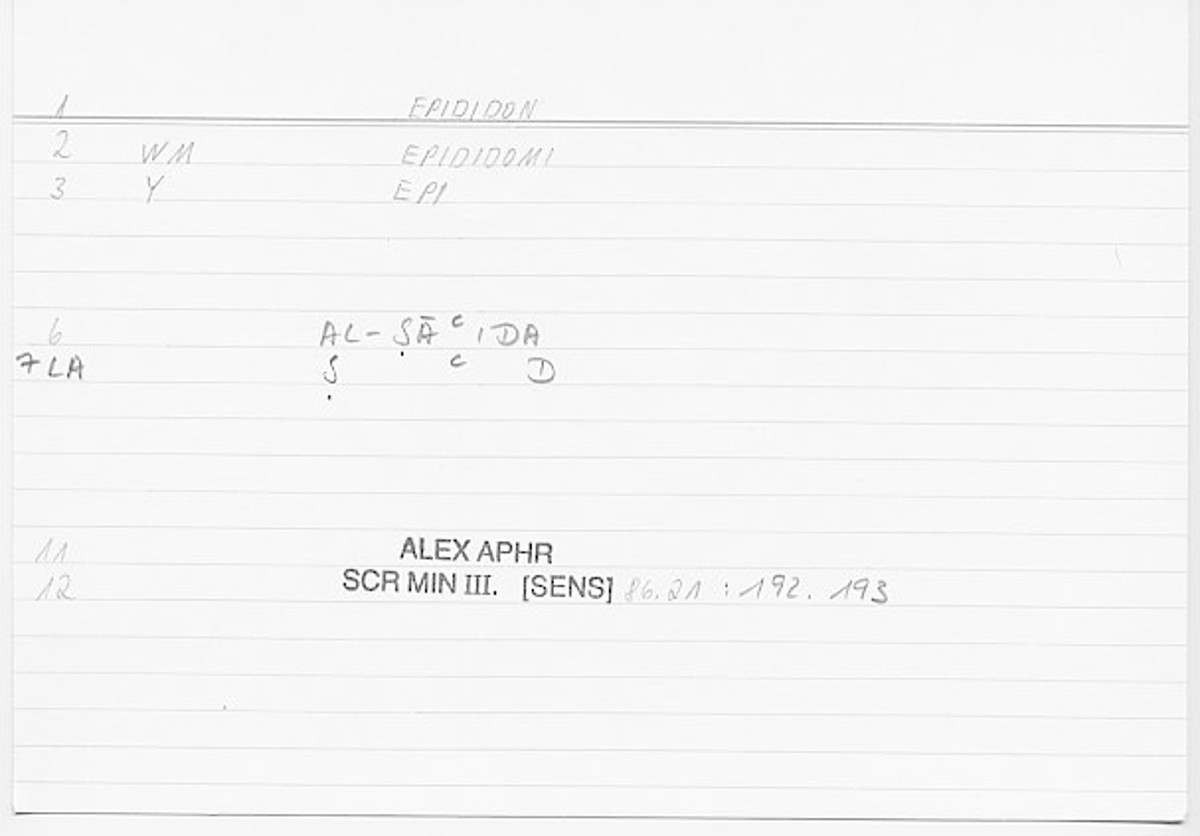 1 EPIDIDON
2 WM EPIDIDOMI
3 Y EPI
6 AL-ṢĀʿIDA
7 LA Ṣ ʿ D
11 ALEX APHR
12 SCR MIN III. [SENS] 86.21 : 192. 193